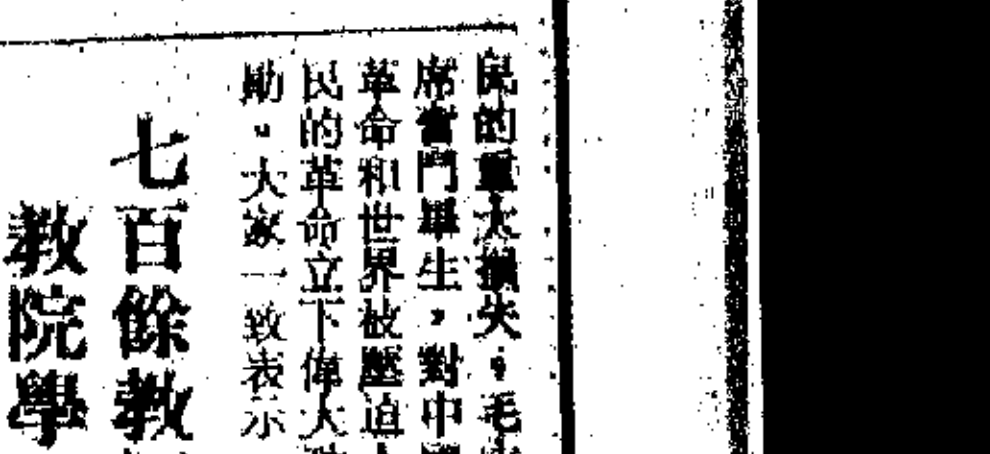 民的重大損失；毛
席奮鬥畢生，對中
革命和世界被壓迫
民的革命立下偉大
勛。大家一致表示
七百餘教
教院學